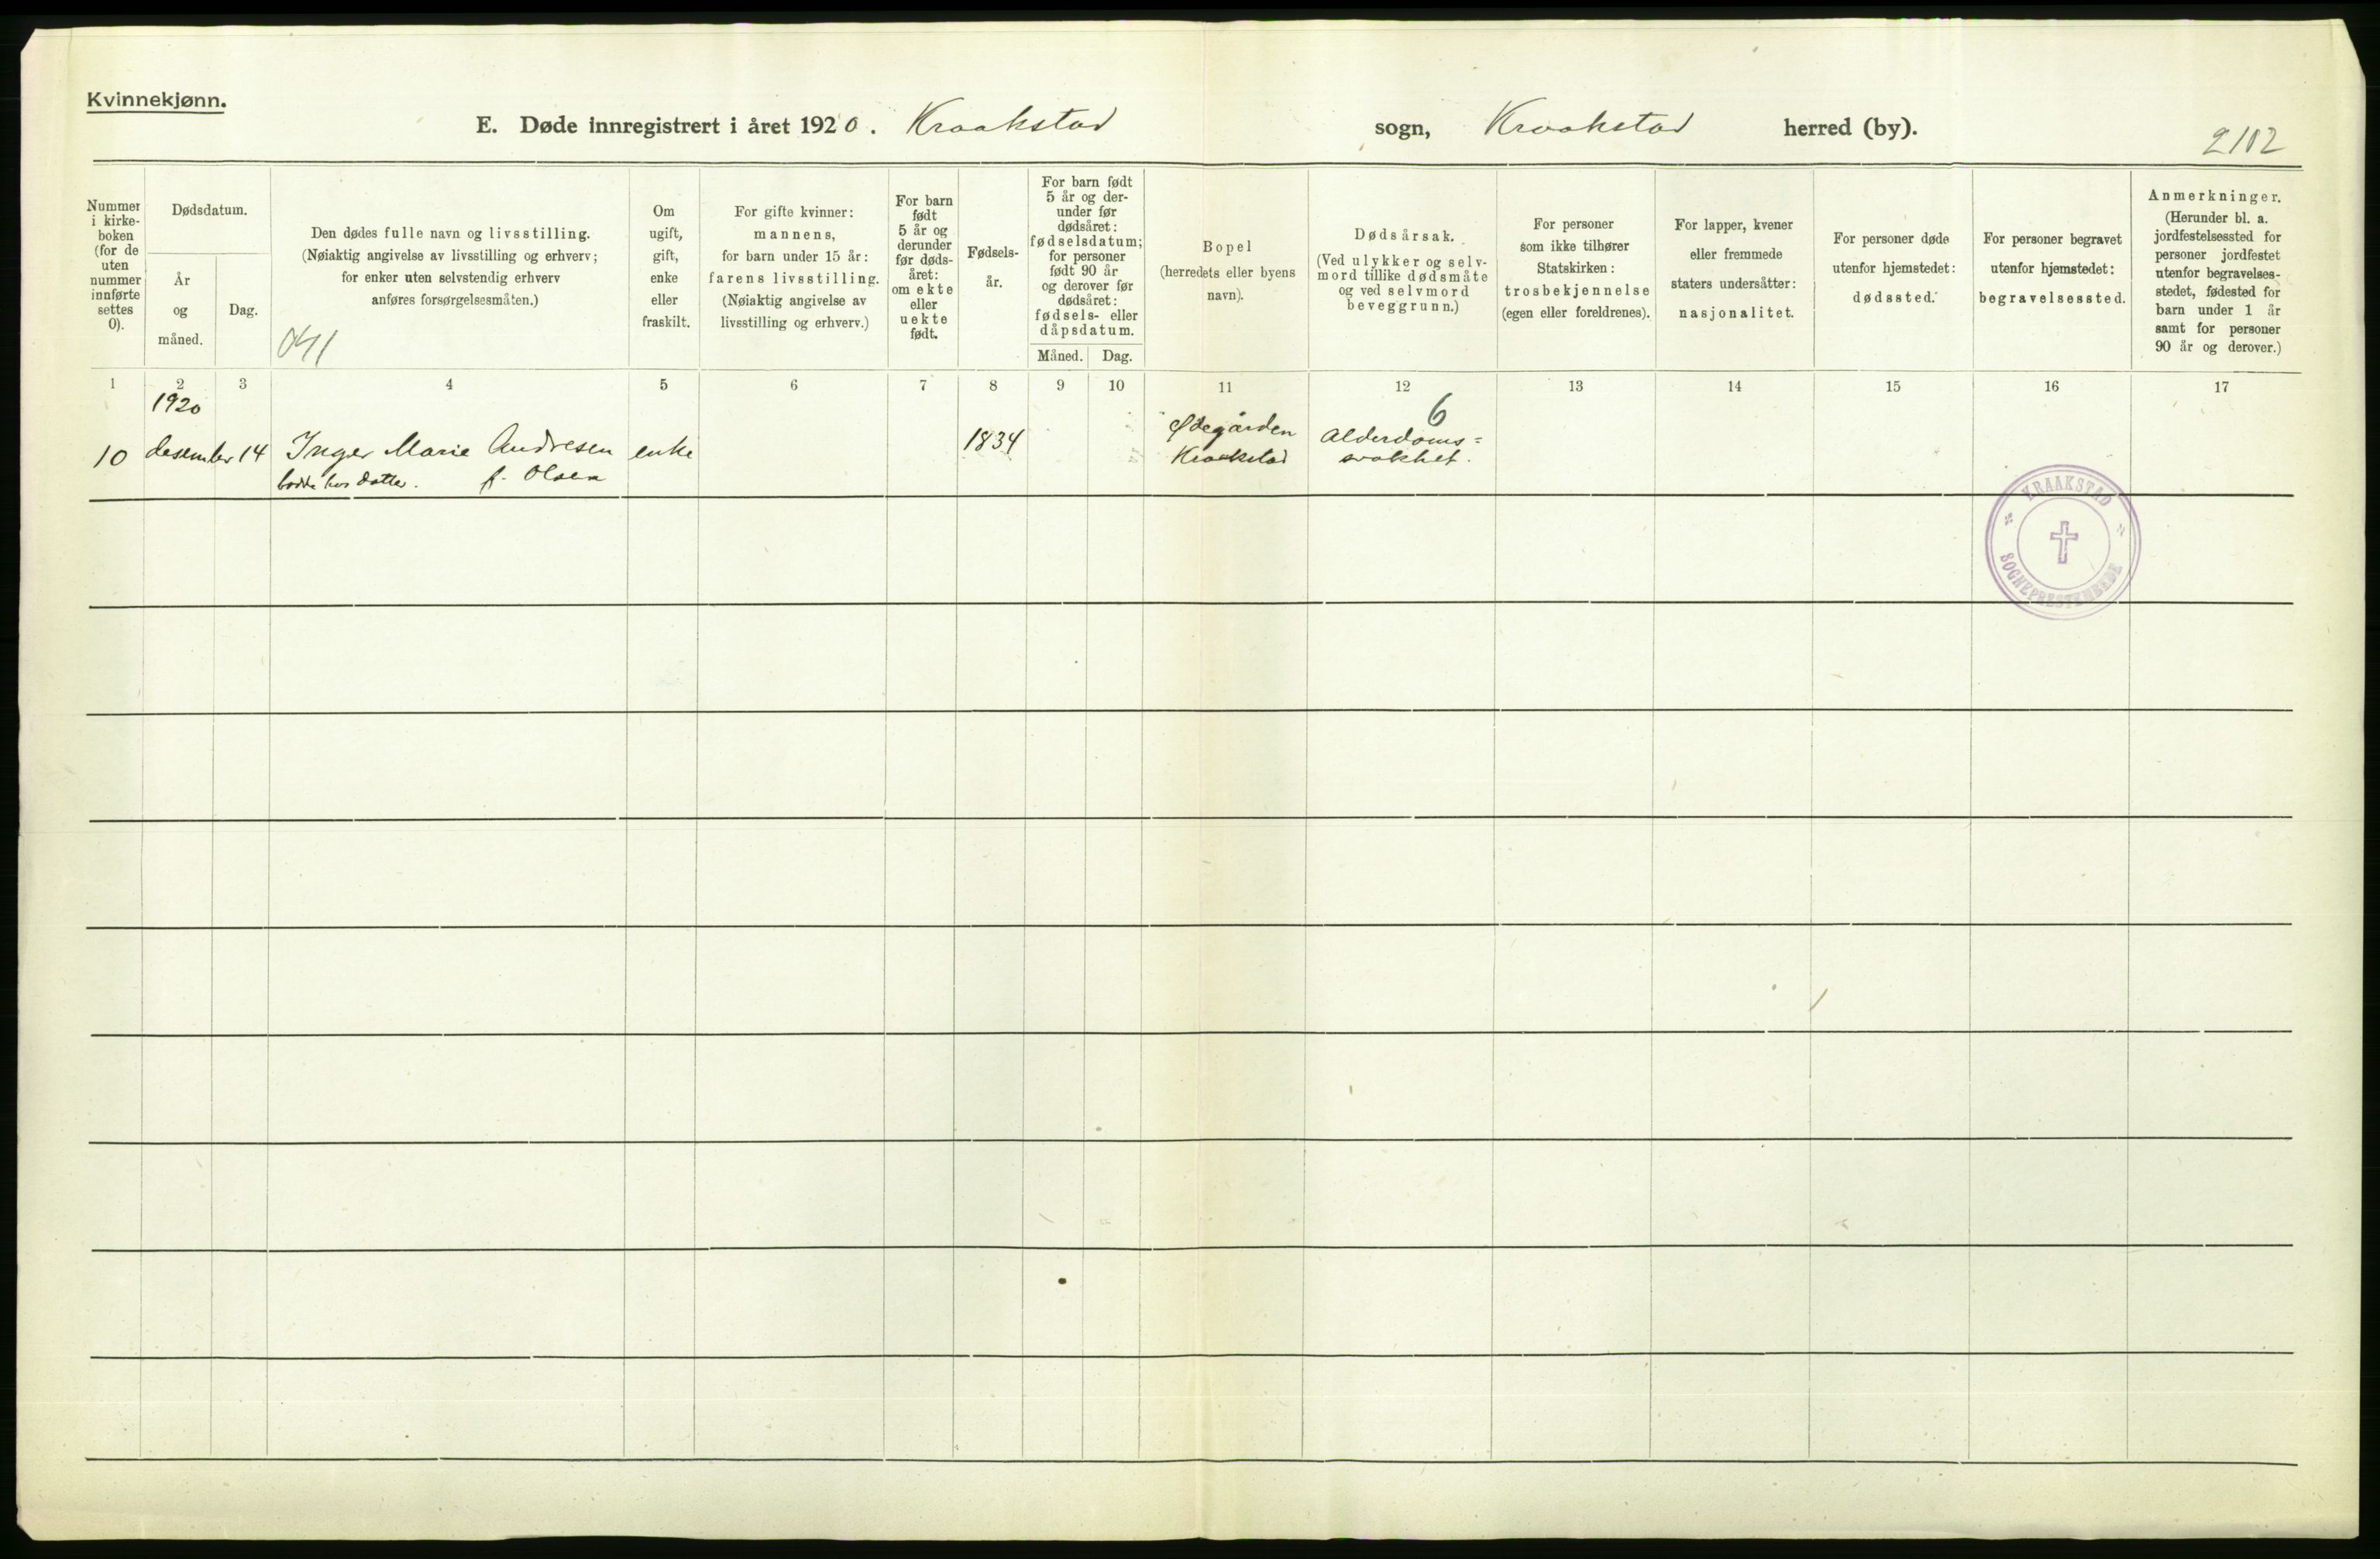 Kvinnekjønn.
E. Døde innregistrert i året 1920. Kraakstad sogn, Kraakstad herred (by).
2102
Nummer
i kirke-
boken
(for de
uten
nummer
innførte
settes
0).
Dødsdatum.
År
og
måned.
Dag.
Den dødes fulle navn og livsstilling.
(Nøiaktig angivelse av livsstilling og erhverv;
for enker uten selvstendig erhverv
anføres forsørgelsesmåten.)
041
Om
ugift,
gift,
enke
eller
fraskilt.
For gifte kvinner:
mannens,
for barn under 15 år:
farens livsstilling.
(Nøiaktig angivelse av
livsstilling og erhverv.)
For barn
født
5 år og
derunder
før døds-
året:
om ekte
eller
uekte
født.
Fødsels-
år.
For barn født
5 år og der-
under før
dødsåret:
fødselsdatum;
for personer
født 90 år
og derover før
dødsåret:
fødsels- eller
dåpsdatum.
Måned. Dag.
Bopel
(herredets eller byens
navn).
Dødsårsak.
(Ved ulykker og selv-
mord tillike dødsmåte
og ved selvmord
beveggrunn.)
For personer
som ikke tilhører
Statskirken:
trosbekjennelse
(egen eller foreldrenes).
For lapper, kvener
eller fremmede
staters undersåtter:
nasjonalitet.
For personer døde
utenfor hjemstedet:
dødssted.
For personer begravet
utenfor hjemstedet:
begravelsessted.
Anmerkninger.
(Herunder bl. a.
jordfestelsessted for
personer jordfestet
utenfor begravelses-
stedet, fødested for
barn under 1 år
samt for personer
90 år og derover.)
1 2 3 4 5 6 7 8 9 10 11 12 13 14 15 16 17
1920
6
10 desember 14 Inger Marie Andresen enke 1834 Ødegården Alderdoms=
bodde hos datter. f. Olsen Kraakstad svakhet.
KRAAKSTAD
SOGNEPRESTEMBEDE